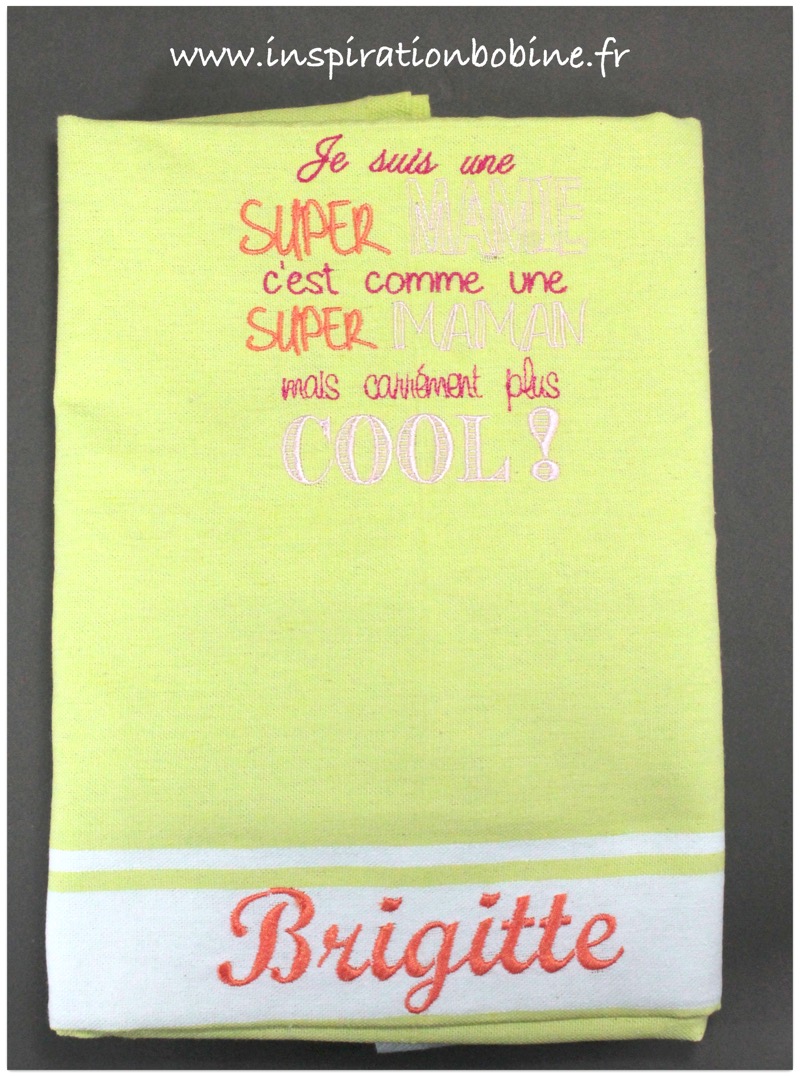 www.inspirationbobine.fr
Je suis une
SUPER MAMIE
c'est comme une
SUPER MAMAN
mais carrément plus
COOL !
Brigitte